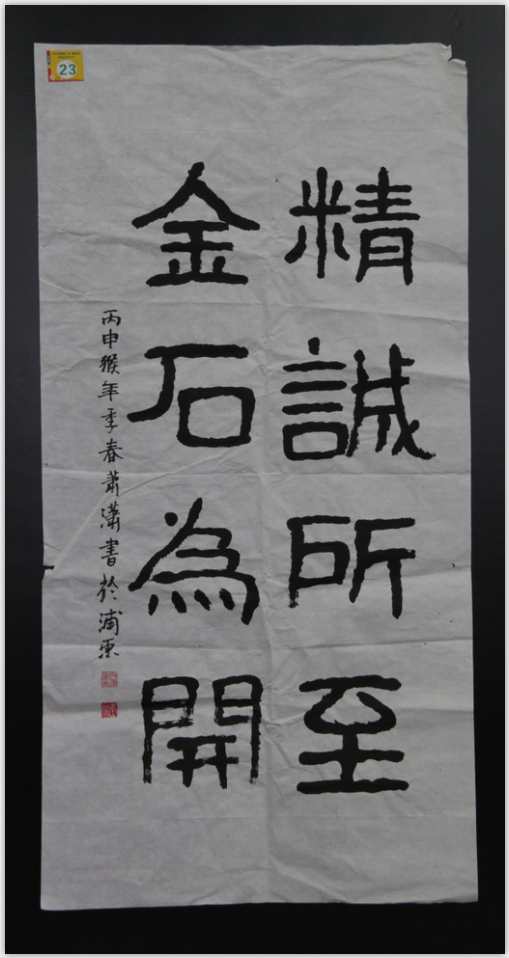 精誠所至
金石為開
丙申猴年季春蕭瀟書於浦東
23